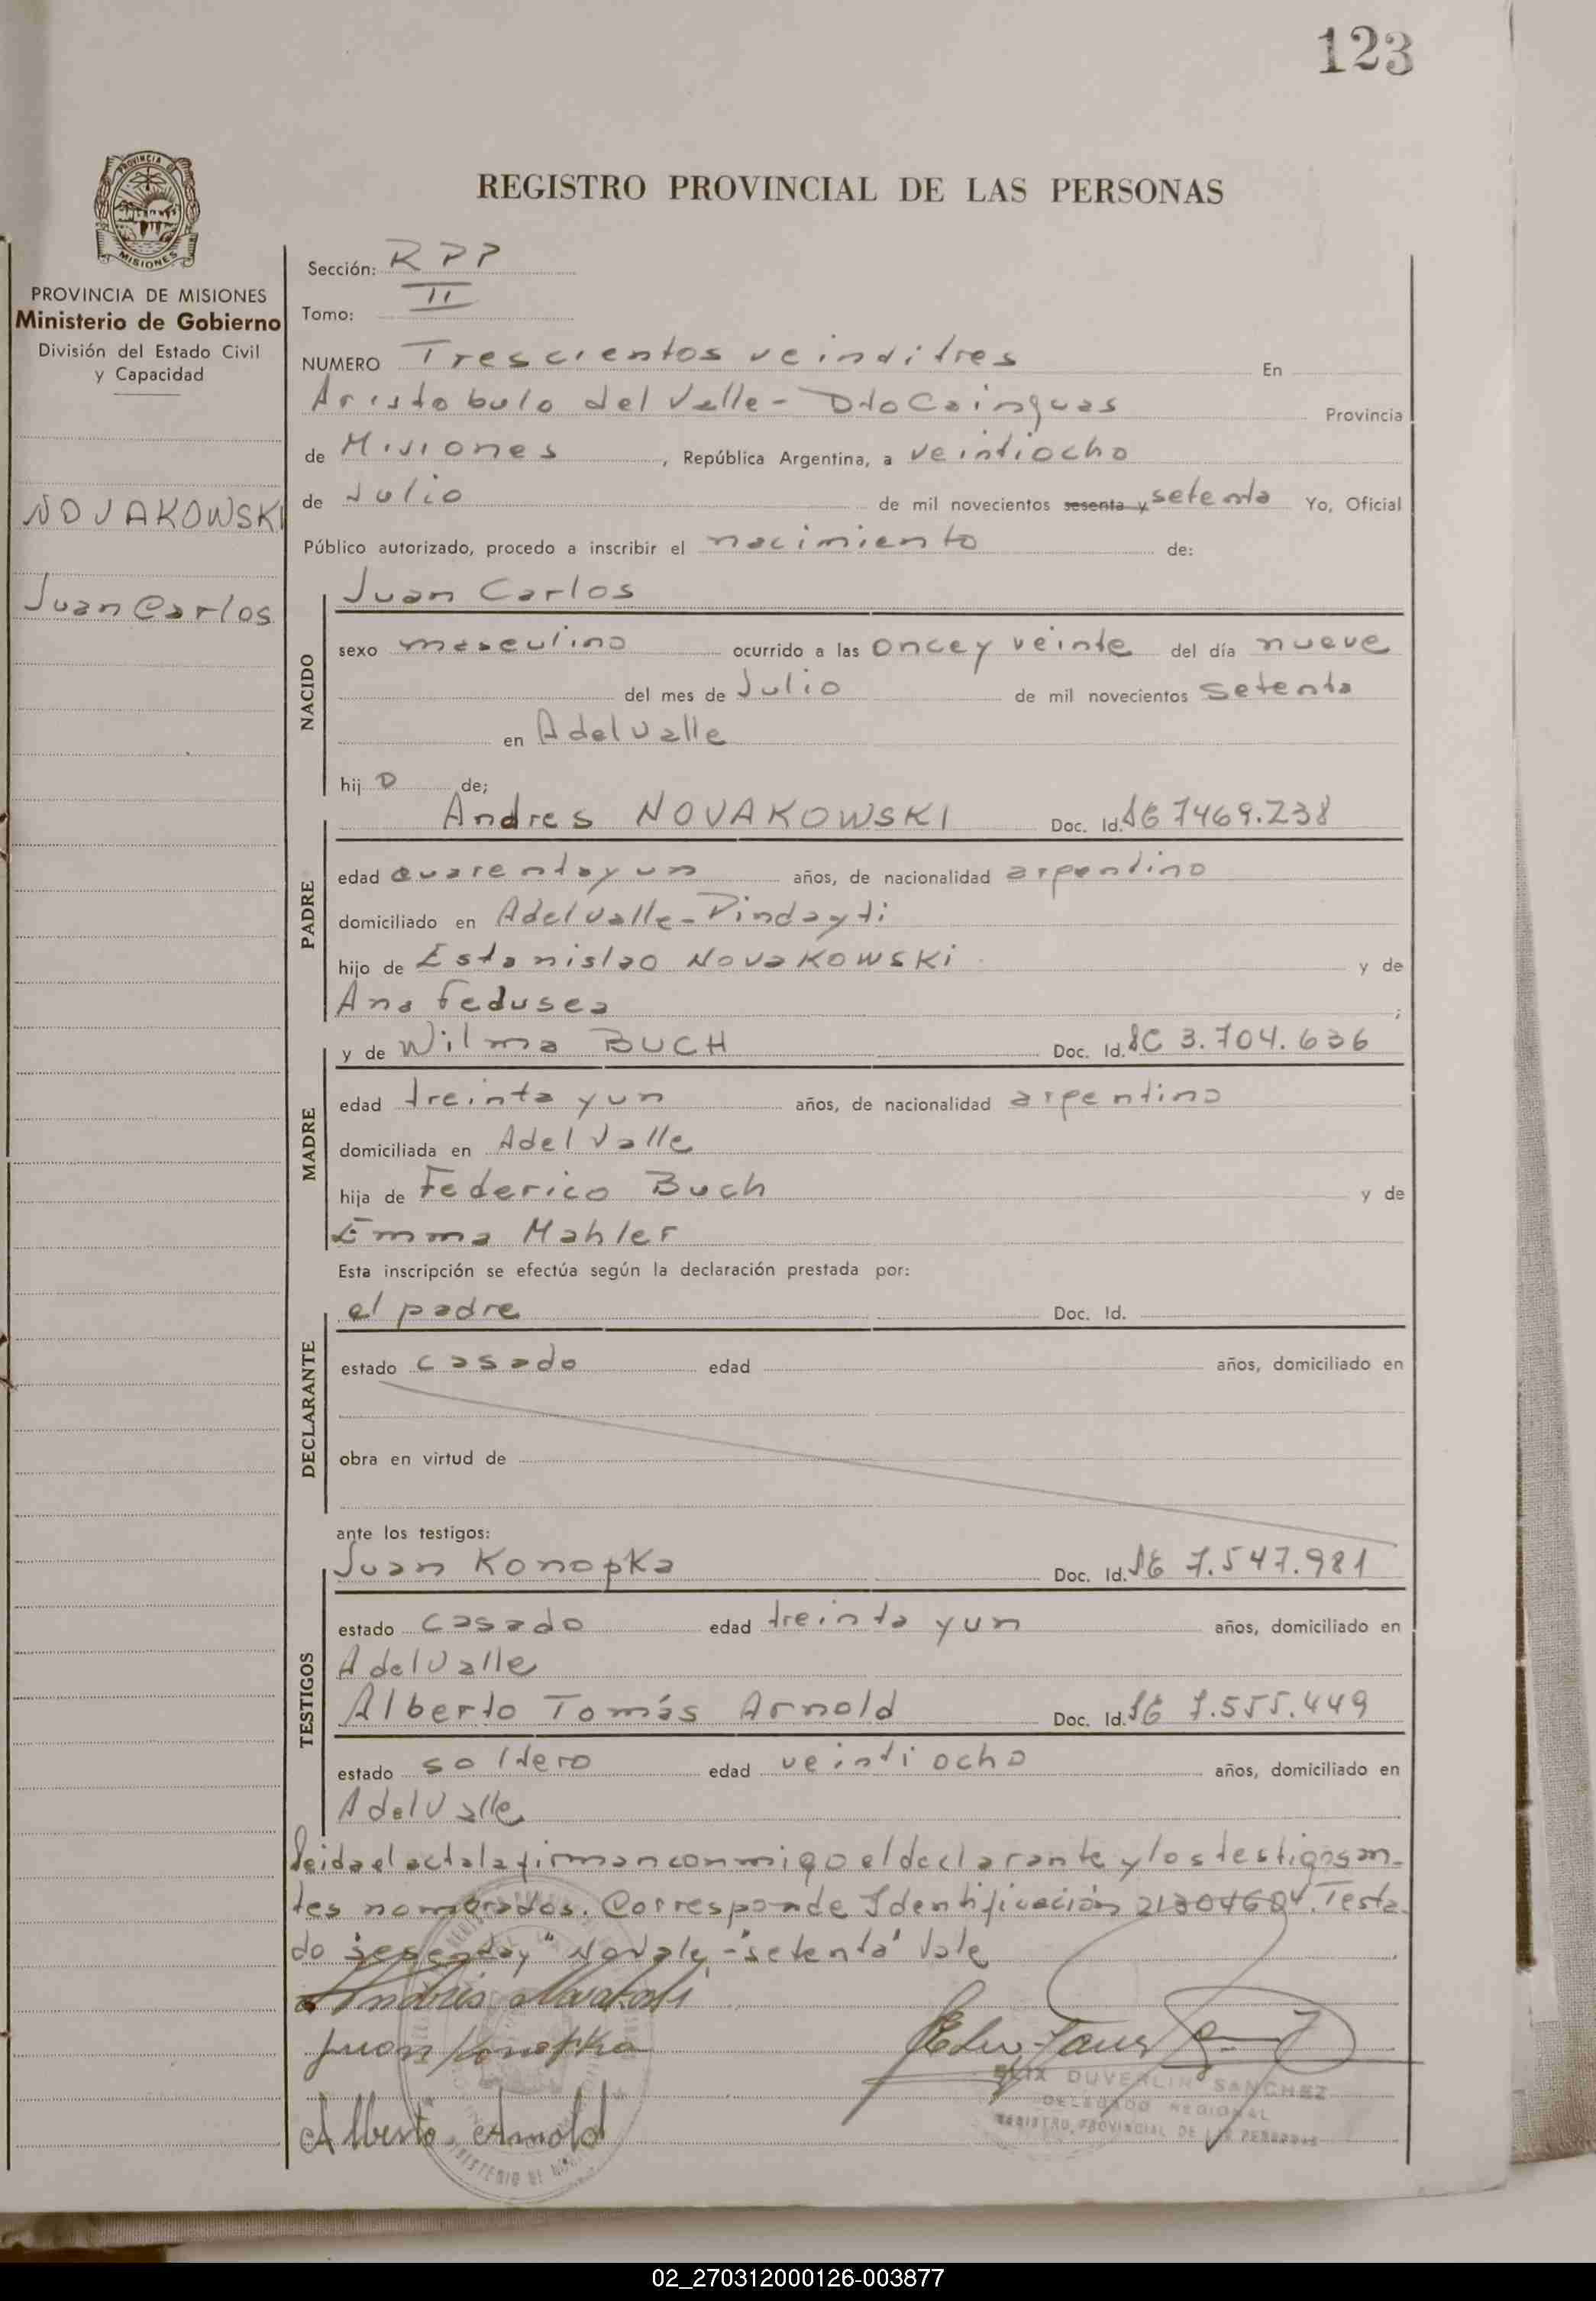 123
REGISTRO PROVINCIAL DE LAS PERSONAS
PROVINCIA DE MISIONES
Ministerio de Gobierno
División del Estado Civil
y Capacidad
NOVAKOWSKI
Juan Carlos
Sección: RPP
Tomo: II
NUMERO Trescientos veintitres En
Aristobulo del Valle - Dto Cainguas Provincia
de Misiones, República Argentina, a veintiocho
de Julio de mil novecientos sesenta y setenta Yo, Oficial
Público autorizado, procedo a inscribir el nacimiento de:
NACIDO
Juan Carlos
sexo masculino ocurrido a las once y veinte del día nueve
del mes de Julio de mil novecientos setenta
en A del Valle
hijo de;
PADRE
Andres NOVAKOWSKI Doc. Id. 7469.238
edad cuarenta y un años, de nacionalidad argentino
domiciliado en A del Valle - Pindayti
hijo de Estanislao Novakowski y de
Ana Fedusea ;
MADRE
y de Wilma BUCH Doc. Id. 3.704.636
edad treinta y un años, de nacionalidad argentino
domiciliada en A del Valle
hija de Federico Buch y de
Emma Mahler
Esta inscripción se efectúa según la declaración prestada por:
DECLARANTE
el padre Doc. Id.
estado casado edad años, domiciliado en
obra en virtud de
ante los testigos:
TESTIGOS
Juan Konopka Doc. Id. 7.547.981
estado casado edad treinta y un años, domiciliado en
A del Valle
Alberto Tomás Arnold Doc. Id. 7.555.449
estado soltero edad veintiocho años, domiciliado en
A del Valle
leida el acta la firman conmigo el declarante y los testigos an-
tes nombrados. Corresponde Identificación 21304604. Testa-
do "sesenta y" No vale - "setenta" Vale
Juan Konopka
Alberto Arnold
DUVERLIN SANCHEZ
DELEGADO REGIONAL
REGISTRO PROVINCIAL DE LAS PERSONAS
02_270312000126-003877